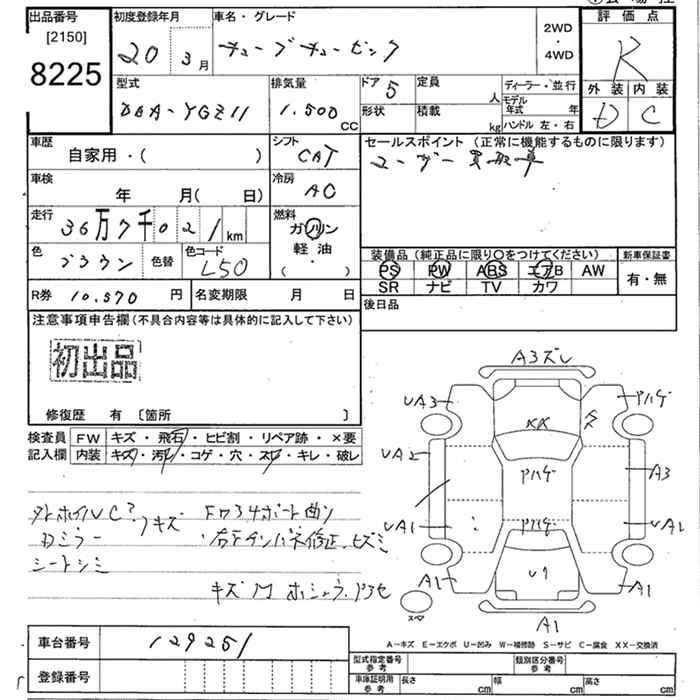 出品番号
[2150]
8225
初度登録年月
20 3月
車名・グレード
キューブキュービック
2WD
・
4WD
評価点
R
外装 内装
D C
型式
DBA-YGZ11
排気量
1.500
CC
ドア 5
形状
定員
人
積載
kg
ディーラー・並行
モデル年式 年
ハンドル 左・右
車歴
自家用・( )
シフト
CAT
セールスポイント (正常に機能するものに限ります)
ユーザー買取車
車検
年 月( 日)
冷房
AC
走行
36万7千021km
燃料
ガソリン
軽・油
( ・ )
色
ブラウン
色替
色コード
L50
装備品(純正品に限り〇をつけてください)
新車保証書
PS PW ABS エアB AW
SR ナビ TV カワ
有・無
R券 10.570 円
名変期限 月 日
後日品
注意事項申告欄(不具合内容等は具体的に記入して下さい)
初出品
修復歴 有 〔箇所 〕
検査員
記入欄
FW キズ・飛石・ヒビ割・リペア跡・×要
内装 キズ・汚レ・コゲ・穴・スレ・キレ・破レ
キズ
Fワ34ボート曲り
シートシミ
A3ズレ
UA3
UA2
UA1
A1
XX
Pハゲ
Pハゲ
U7
Pハゲ
A3
UA1
A1
A1
スペア
A-キズ E-エクボ U-凹み W-補修跡 S-サビ C-腐食 XX-交換済
車台番号
129251
登録番号
型式指定番号
参考
類別区分番号
参考
車庫証明用
参考
長さ cm
幅 cm
高さ cm